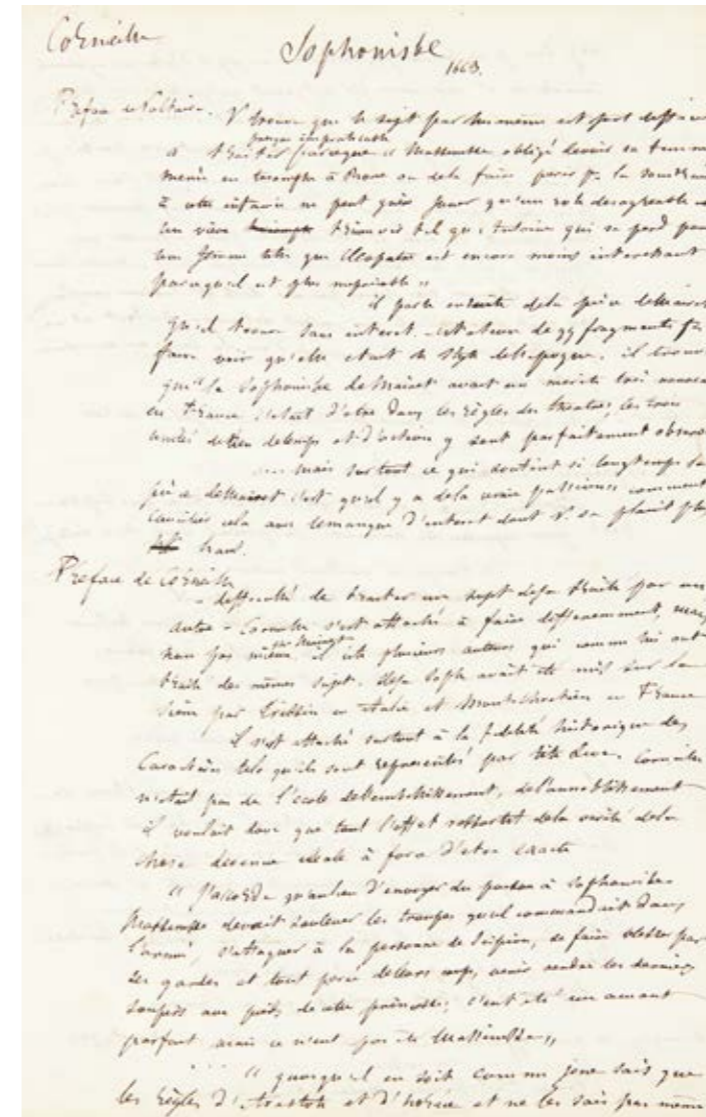 Corneille
Sophonisbe
1663.
Preface de Voltaire. V. trouve que le sujet par lui même est fort
presque impraticable
à traiter parceque " Massinisse obligé de voir sa femme
menée en triomphe à Rome ou de la faire perir pr la soustraire
à cette infamie ne peut guère jouer qu'un role desagreable
un vieux triumvir tel qu'Antoine qui se perd pour
une femme telle que Cleopatre est encore moins interessant
parcequ'il est plus meprisable "
il parle ensuite de la pièce de Mairet
qu'il trouve sans interet. de 99 fragments pr
faire voir qu'elle etait de style de l'epoque. il trouve
que la Sophonisbe de Mairet avait un merite très nouveau
en France c'etait d'etre dans les règles du theatre, les trois
unités de lieu de temps et d'action y sont parfaitement
mais surtout ce qui soutint si longtemps la
pièce de Mairet c'est qu'il y a de la vraie passion comment
concilier cela avec le manque d'interet dont V. se plaint plus
haut.
Preface de Corneille
difficulté de traiter un sujet deja traité par un
autre - Corneille s'est attaché à faire differemment, mais
non pas mieux il cite plusieurs auteurs qui comme lui ont
traité des mêmes sujets. deja Soph avait été mis sur la
scène par Trissin en Italie et Montchrestien en France
il s'est attaché surtout à la fidelité historique des
Caractères tels qu'ils sont representés par Tite Live. Corneille
n'etait pas de l'ecole de l'embellissement, de l'annoblissement
il voulait donc que tout l'effet ressortit de la verité de la
chose devenue ideale à force d'etre exacte
" J'accorde qu'au lieu d'envoyer du poison à Sophonisbe
Massinisse devait soulever les troupes qu'il commandait dans
l'armée, s'attaquer à la personne de Scipion, se faire blesser par
ses gardes et tout percé de leurs coups, venir rendre les derniers
soupirs aux pieds de cette princesse; c'eut été un amant
parfait mais ce n'eut pas été Massinisse "
" quoiqu'il en soit comme je ne sais que
les règles d'Aristote et d'Horace et ne les sais pas même